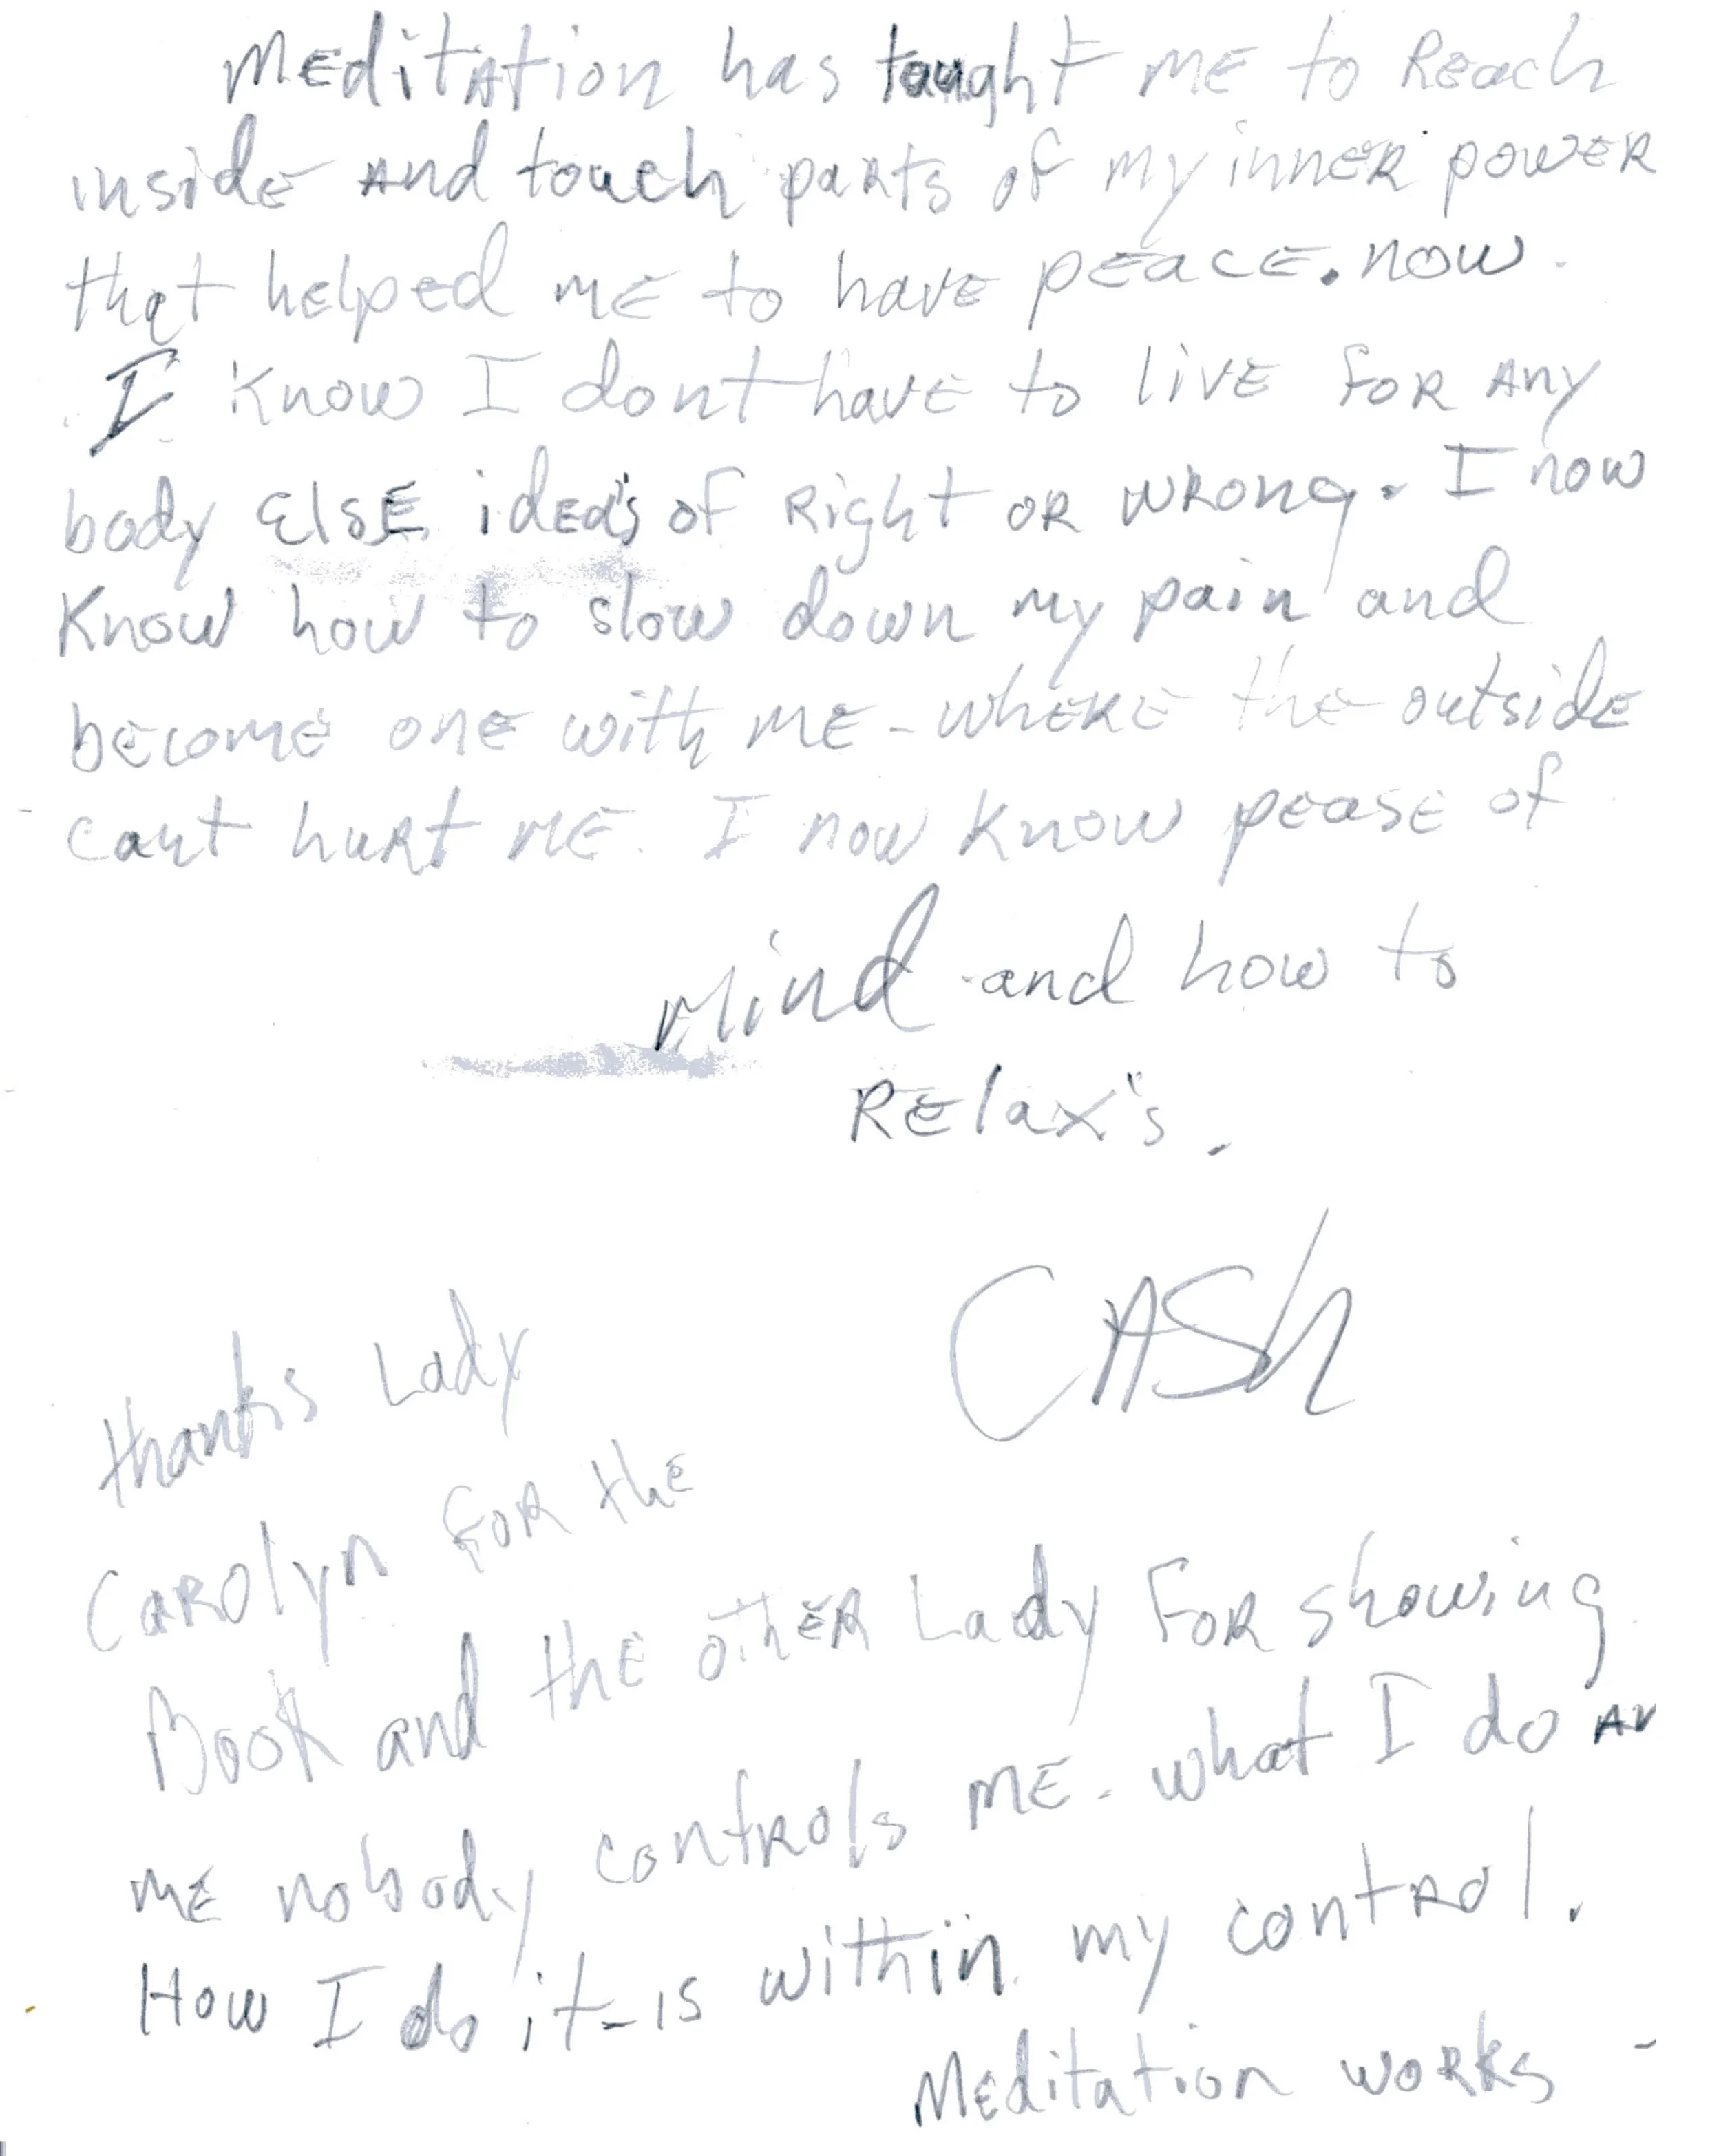 Meditation has taught me to Reach
inside and touch parts of my inner power
that helped me to have peace. now
I know I dont have to live for any
body else idea's of Right or wrong. I now
Know how to slow down my pain and
become one with me - where the outside
cant hurt me. I now know pease of
Mind and how to
Relax's.
CASh
thanks Lady
Carolyn for the
Book and the other Lady for showing
me nobody controls me. what I do an
How I do it - is within my control.
Meditation works -